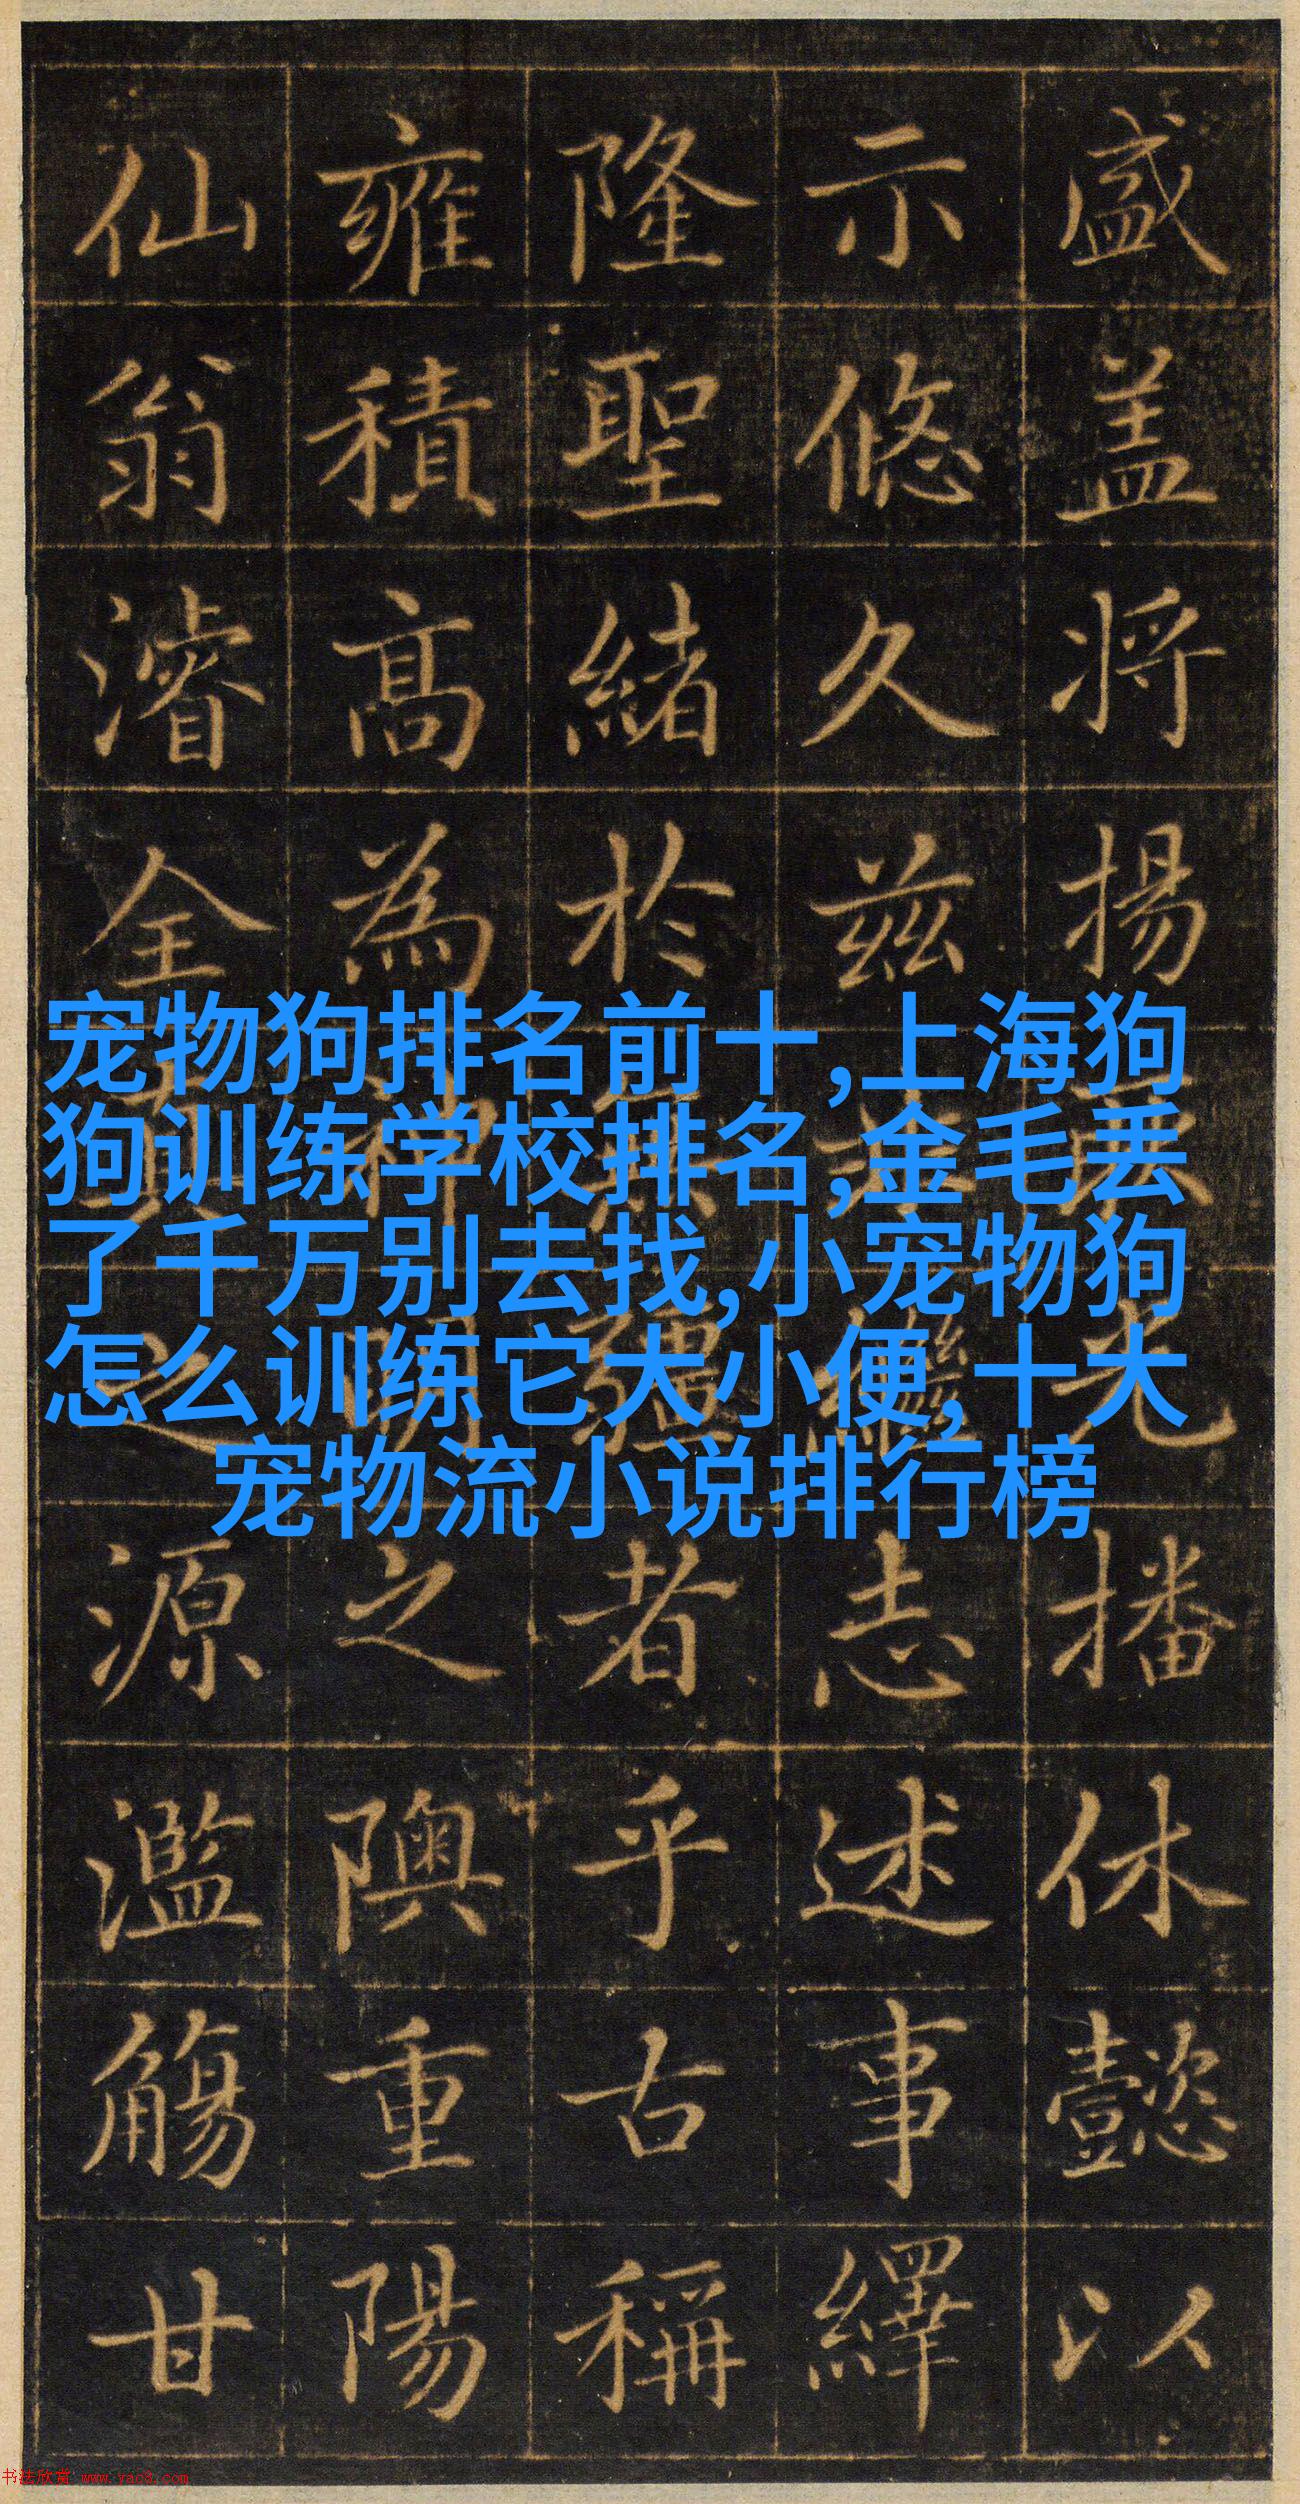 盛盖将揚光播休懿以
示悠久兹繼志述事繹
隆聖緒於無疆者乎古稱
雍積高為神明之隩重陽
仙翁濬全真之源濫觴甘
宠物狗排名前十,上海狗
狗训练学校排名,金毛丢
了千万别去找,小宠物狗
怎么训练它大小便,十大
宠物流小说排行榜
书法欣赏 www.yac8.com